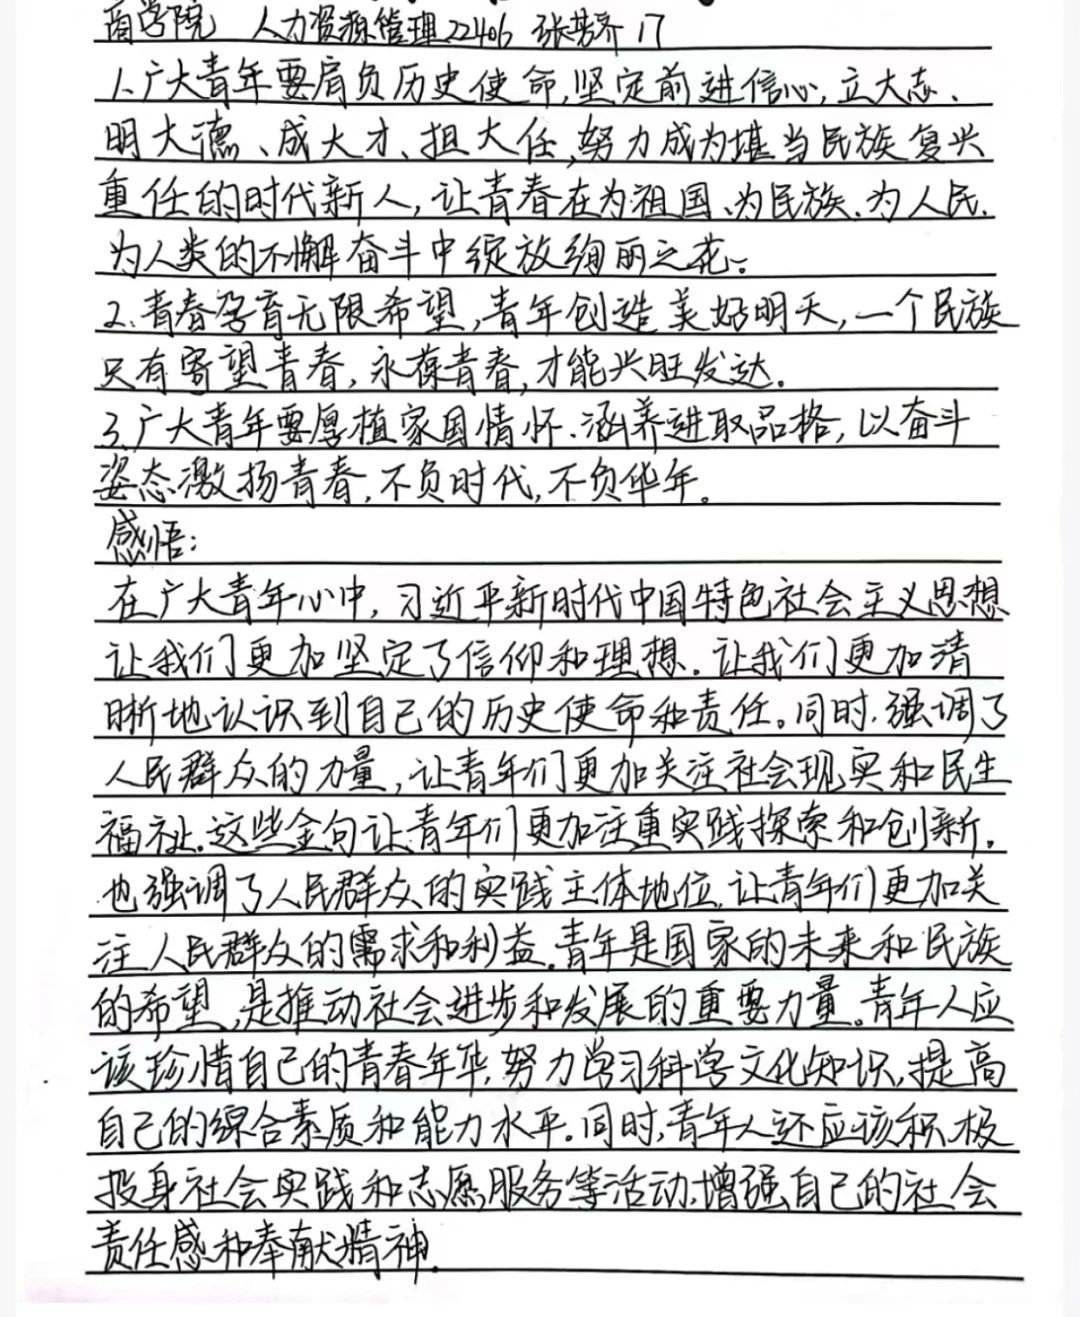 商学院 人力资源管理22406 张芸齐 17
1.广大青年要肩负历史使命,坚定前进信心,立大志、
明大德、成大才、担大任,努力成为堪当民族复兴
重任的时代新人,让青春在为祖国、为民族、为人民、
为人类的不懈奋斗中绽放绚丽之花。
2.青春孕育无限希望,青年创造美好明天,一个民族
只有寄望青春,永葆青春,才能兴旺发达。
3.广大青年要厚植家国情怀、涵养进取品格,以奋斗
姿态激扬青春,不负时代,不负华年。
感悟:
在广大青年心中,习近平新时代中国特色社会主义思想
让我们更加坚定了信仰和理想,让我们更加清
晰地认识到自己的历史使命和责任。同时,强调了
人民群众的力量,让青年们更加关注社会现实和民生
福祉。这些金句让青年们更加注重实践探索和创新。
也强调了人民群众的实践主体地位,让青年们更加关
注人民群众的需求和利益。青年是国家的未来和民族
的希望,是推动社会进步和发展的重要力量。青年人应
该珍惜自己的青春年华,努力学习科学文化知识,提高
自己的综合素质和能力水平。同时,青年人还应该积极
投身社会实践和志愿服务等活动,增强自己的社会
责任感和奉献精神。